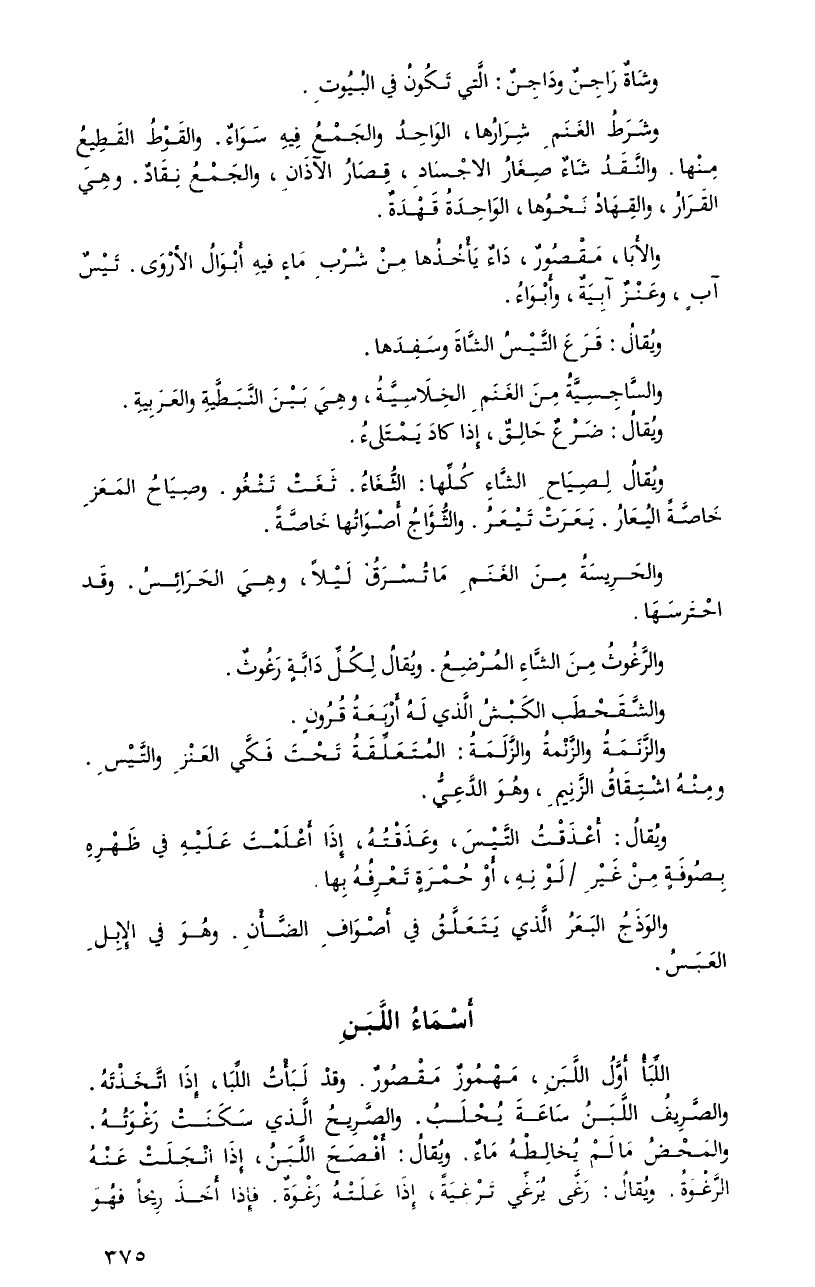 وشَاةٌ رَاجِنٌ ودَاجِنٌ : الَّتي تَكُونُ في البُيُوتِ .
وشَرَطُ الغَنَمِ شِرَارُها ، الوَاحِدُ والجَمْعُ فِيهِ سَوَاءٌ . والقَوْطُ القَطِيعُ
مِنْها . والنَّقَدُ شَاءٌ صِغَارُ الاجْسادِ ، قِصَارُ الآذَانِ ، والجَمْعُ نِقَادٌ . وهِيَ
القَرَارُ ، والقِهَادُ نَحْوُها ، الوَاحِدَةُ قَهْدَةٌ .
والأَبَا ، مَقْصُورٌ ، دَاءٌ يَأْخُذُها مِنْ شُرْبِ مَاءٍ فيهِ أَبْوَالُ الأَرْوَى . تَيْسٌ
آبٍ ، وعَنْزٌ آبِيَةٌ ، وأَبْوَاءُ .
ويُقالُ : قَرَعَ التَّيْسُ الشَّاةَ وسَفِدَها .
والسَّاجِسِيَّةُ مِنَ الغَنَمِ الخِلَاسِيَّةُ ، وهِيَ بَيْنَ النَّبَطِيَّةِ والعَرَبِيةِ .
ويُقالُ : ضَرْعٌ حَالِقٌ ، إذا كادَ يَمْتَلىءُ .
ويُقالُ لِصِيَاحِ الشَّاءِ كُلِّها : الثُّغَاءُ . ثَغَتْ تَثْغُو . وصِيَاحُ المَعَزِ
خَاصَّةً اليُعَارُ . يَعَرَتْ تَيْعَرُ . والثُّؤَاجُ أَصْوَاتُها خَاصَّةً .
والحَرِيسَةُ مِنَ الغَنَمِ مَا تُسْرَقُ لَيْلاً ، وهِيَ الحَرَائِسُ . وقَد
احْتَرسَهَا .
والرَّغُوثُ مِنَ الشَّاءِ المُرْضِعُ . ويُقالُ لِكُلِّ دَابَّةٍ رَغُوثٌ .
والشَّقَحْطَب الكَبْشُ الَّذي لَهُ أَرْبَعَةُ قُرُونٍ .
والزَّنَمَةُ والزَّنْمةُ والزَّلَمَةُ : المُتَعَلِّقَةُ تَحْتَ فَكَّي العَنْزِ والتَّيْسِ .
ومِنْهُ اشْتِقَاقُ الزَّنِيمِ ، وهُوَ الدَّعِيُّ .
ويُقالُ : أَعْذَقْتُ التَّيْسَ ، وعَذَقْتُهُ ، إِذَا أَعْلَمْتَ عَلَيْهِ في ظَهْرِهِ
بِصُوفَةٍ مِنْ غَيْرِ / لَوْنِهِ ، أَوْ حُمْرَةٍ تَعْرِفُهُ بِها .
والوَذَحُ البَعَرُ الَّذي يَتَعَلَّقُ في أَصْوَافِ الضَّأْنِ . وهُوَ في الإِبِلِ
العَبَسُ .
أَسْمَاءُ اللَّبَنِ
اللِّبَأُ أَوَّلُ اللَّبَنِ ، مَهْمُوزٌ مَقْصُورٌ . وقدْ لَبَأْتُ اللِّبَا ، إِذَا اتَّخَذْتَهُ .
والصَّرِيفُ اللَّبَنُ سَاعَةَ يُحْلَبُ . والصَّرِيحُ الَّذي سَكَنَتْ رَغْوَتُهُ .
والمَحْضُ مَا لَمْ يُخالِطْهُ مَاءٌ . ويُقالُ : أَفْصَحَ اللَّبَنُ ، إِذَا انْجَلَتْ عَنْهُ
الرَّغْوَةُ . ويُقالُ : رَغَّى يُرَغِّي تَرْغِيَةً ، إِذَا عَلَتْهُ رَغْوَةٌ . فإذا أَخَذَ رِيحاً فهُوَ
٣٧٥